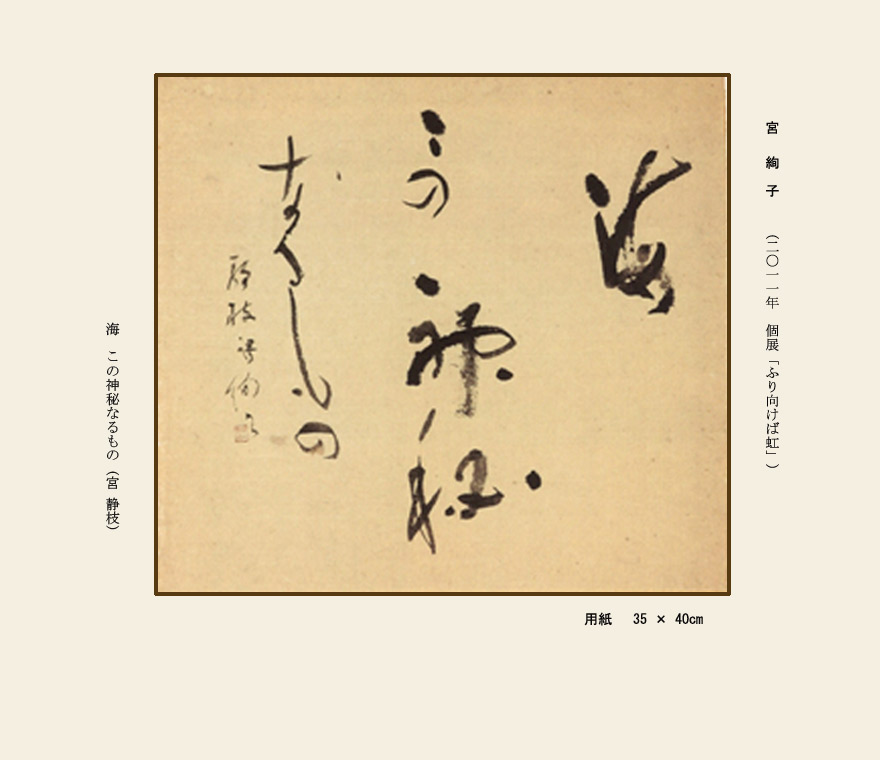 宮 絢子 (二〇一一年 個展「ふり向けば虹」)
海
この神秘
なるもの
静枝詩 絢子
海 この神秘なるもの (宮 静枝)
用紙 35 × 40cm